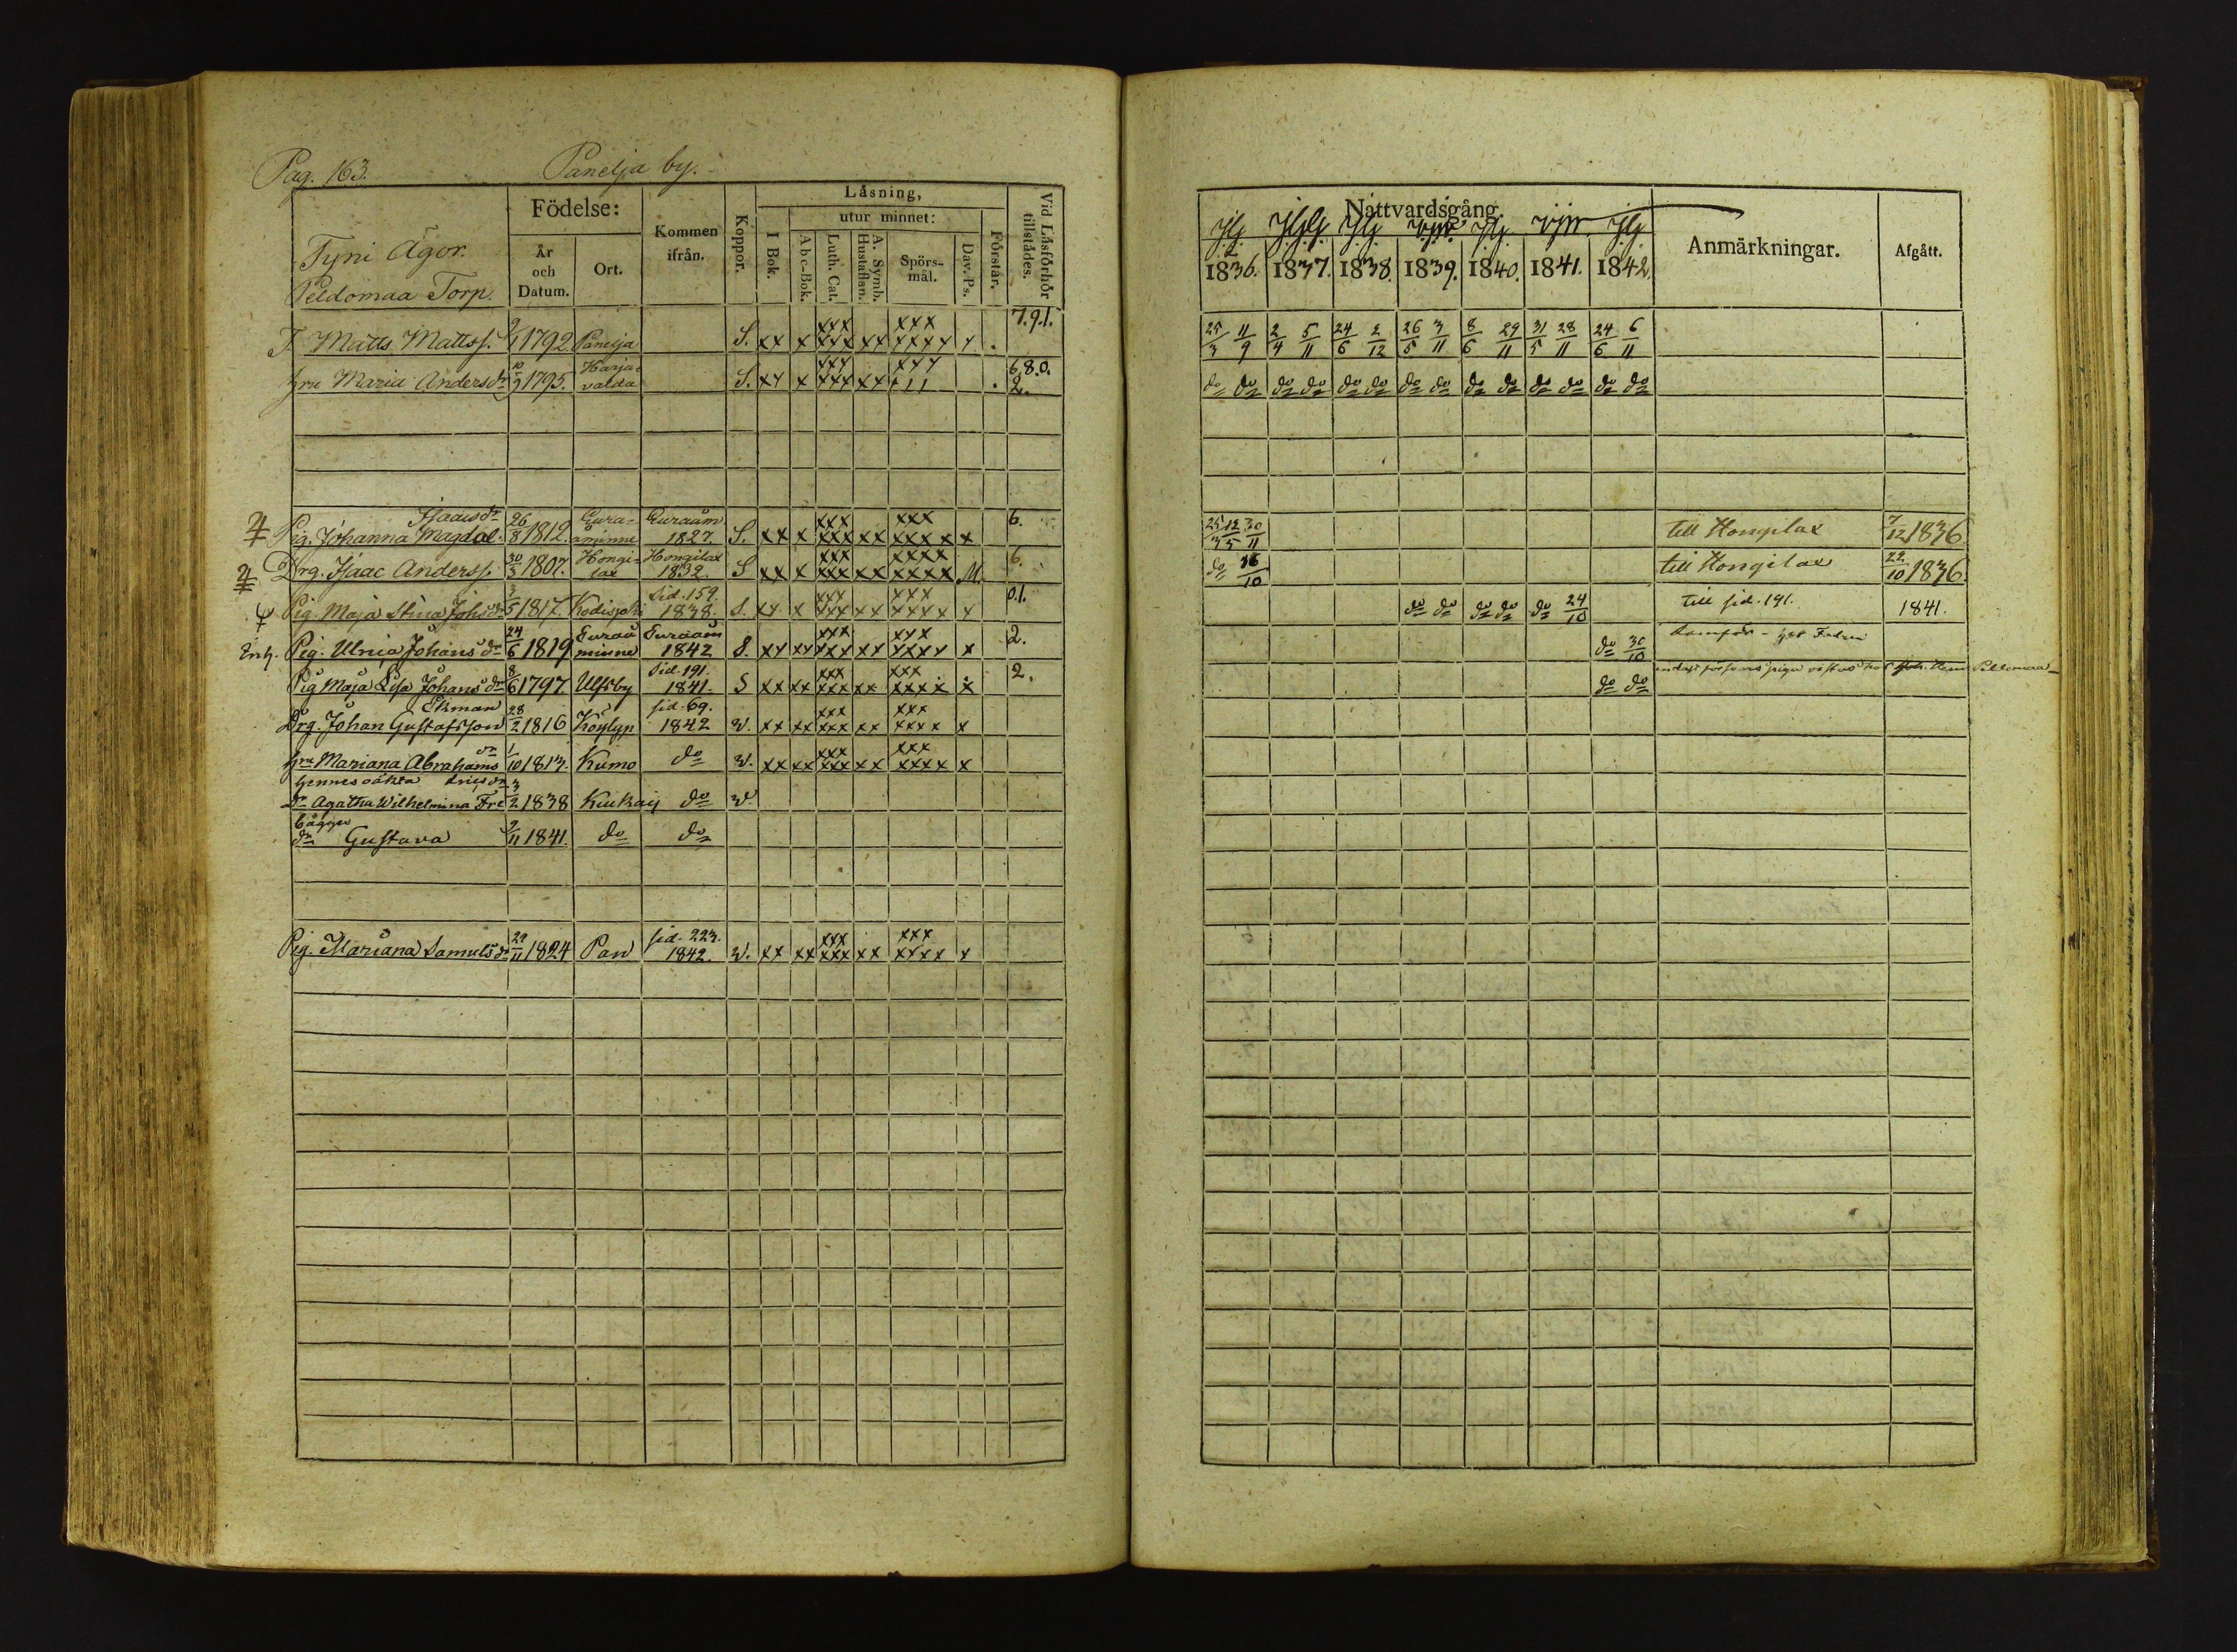 Pag. 163. Panelja by.
Födelse: Kommen ifrån. Koppor. Läsning, Vid Läsförhör tillstädes.
utur minnet:
Tyni Ägor. År och Datum. Ort. I Bok. Abc-Bok. Luth. Cat. A. Symb. Hustaflan. Spörsmål. Dav. Ps. Förstår.
Peldomaa Torp.
T. Matts Mattss. 9/1 1792 Panelja S. xx x xxx xxx xx xxx xxxx x . 7.9.1.
hru Maria Andersdr 10/9 1795. Harjavalda S. xx x xxx xxx xx xxx . 6.8.0. 2.
Isaacsdr
Pig. Johanna Magdal. 26/8 1812. Euraåminne Euraåm 1827. S. xx x xxx xxx xx xxx xxxx x 6.
Drg. Isaac Anderss. 30/3 1807. Hongilax Hongilax 1832. S xx x xxx xxx xx xxxx xxxx M. 6.
Pig. Maja Stina Johsdr 3/5 1817. Kodisjoki Sid. 159. 1838. S. xx x xxx xxx xx xxx xxxx x 0.1.
Enk. Pig. Ulrica Johansdr 24/6 1819 Euraåminne Euraåm 1842 S. xx xx xxx xxx xx xxx xxxx x 2.
Pig Maja Lisa Johansdr 8/6 1797 Ulfsby Sid. 191. 1841. S xx xx xxx xxx xx xxx xxxx x 2.
Ekman
Drg. Johan Gustafsson 28/2 1816 Köylyp sid. 69. 1842 v. xx xx xxx xxx xx xxx xxxx x
hru Mariana Abrahamsdr 1/10 1813. Kumo do v. xx xx xxx xxx xx xxx xxxx x
hennes oäkta
dr Agatha Wilhelmina Fre 3/2 1838 Kiukais do v.
bägges
dr Gustava 9/11 1841. do do
Pig. Mariana Samulsdr 29/11 1824 Pan sid. 223. 1842. v. xx xx xxx xxx xx xxx xxxx x
Nattvardsgång. Anmärkningar. Afgått.
1836. 1837. 1838. 1839. 1840. 1841. 1842.
25/3 11/9 2/4 5/11 24/6 2/12 26/5 3/11 8/6 29/11 31/5 28/11 24/6 6/11
do do do do do do do do do do do do do do
25/3 12/5 30/11 till Hongilax 7/12 1836
do 16/10 till Hongilax 22/10 1836.
do do do do do 24/10 till sid. 191. 1841.
do 30/10
do do Peldomaa